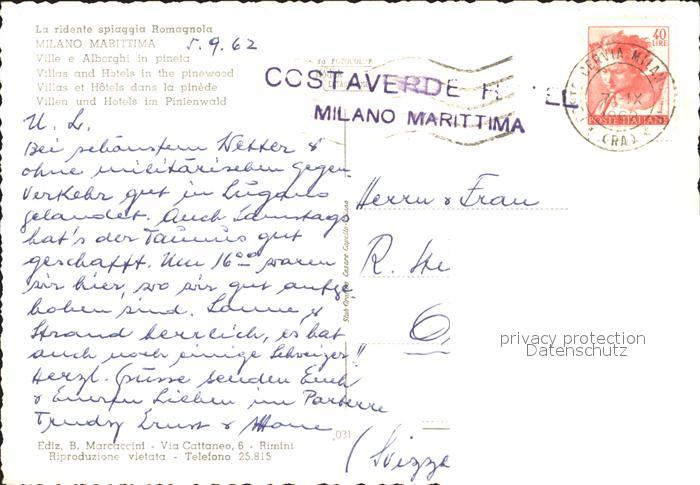 La ridente spiaggia Romagnola
MILANO MARITTIMA 5.9.62
Ville e Alberghi in pineta
Villas and Hotels in the pinewood
Villas et Hôtels dans la pinède
Villen und Hotels im Pinienwald
COSTAVERDE H EL
MILANO MARITTIMA
40
LIRE
POSTE ITALIANE
CERVIA MILAN
(RA)
U. L.
Bei schönstem Wetter &
ohne militärischen Gegen-
verkehr gut in Lugano
gelandet. Auch Samstags
hat's der Taunus gut
geschafft. Um 16⁰⁰ waren
wir hier, wo wir gut aufge-
hoben sind. Sonne &
Strand herrlich, es hat
auch noch einige Schweizer!!
Herzl. Grüsse senden Euch
& Euren Lieben im Parterre
Trudy Ernst &
Herrn & Frau
R. Ste
(Svizze
privacy protection
Datenschutz
031
Ediz. B. Marcaccini - Via Cattaneo, 6 - Rimini
Riproduzione vietata - Telefono 25.815